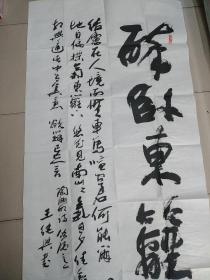 醉卧東籬
结廬在人境而無車馬喧問君何能爾心遠
地自偏採菊東籬下悠然見南山山氣日夕佳飛
鳥相與還此中有真意欲辨已忘言 陶淵明詩飲酒
王继興書